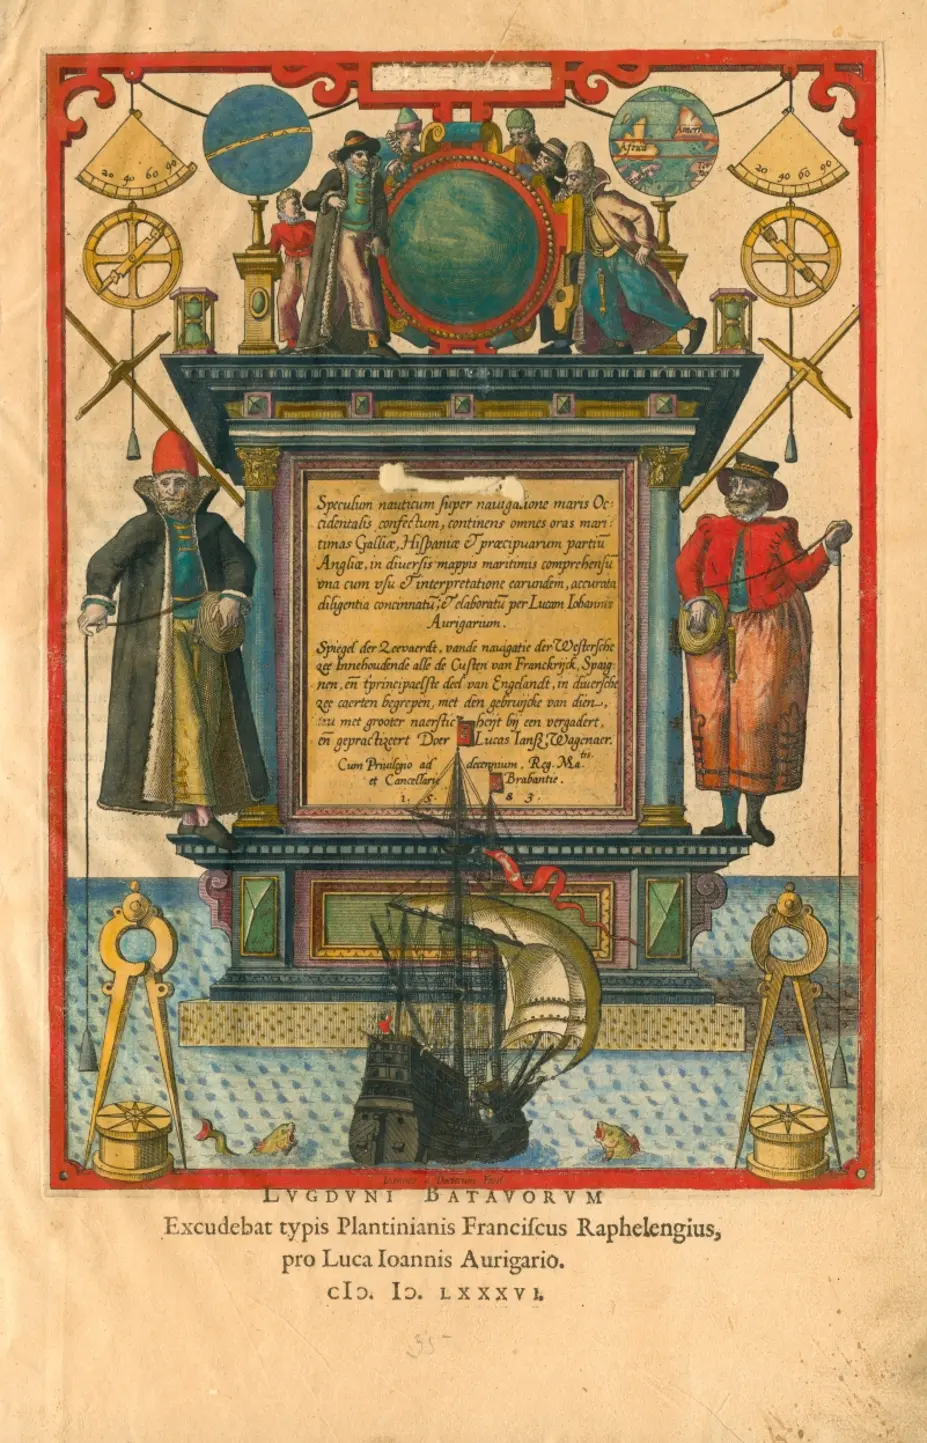 20 40 60 90
Africa
Ameri
20 40 60 90
Speculum nauticum ſuper nauigatione maris Oc:
cidentalis confectum, continens omnes oras mari:
timas Galliæ, Hiſpaniæ & præcipuarum partiū
Angliæ, in diuerſis mappis maritimis comprehenſū
vna cum vſu & interpretatione earundem, accurata
diligentia concinnatū, & elaboratū per Lucam Iohannis
Aurigarium.
Spiegel der Zeevaerdt, vande nauigatie der Westersche
zee Innehoudende alle de Custen van Franckrijck, Spaig:
nen, eñ tprincipaelste deel van Engelandt, in diuersche
zee caerten begrepen, met den gebruijcke van dien,
met grooter naerstic heyt bij een vergadert,
eñ gepractizeert Doer Lucas Ianſz Wagenaer.
Cum Priuilegio ad decennium, Reg. Matis.
et Cancellarie Brabantie.
1. 5. 8 3.
Ioannes a Doetecum Fecit
LVGDVNI BATAVORVM
Excudebat typis Plantinianis Franciſcus Raphelengius,
pro Luca Ioannis Aurigario.
cIↄ. Iↄ. LXXXVI.
35-